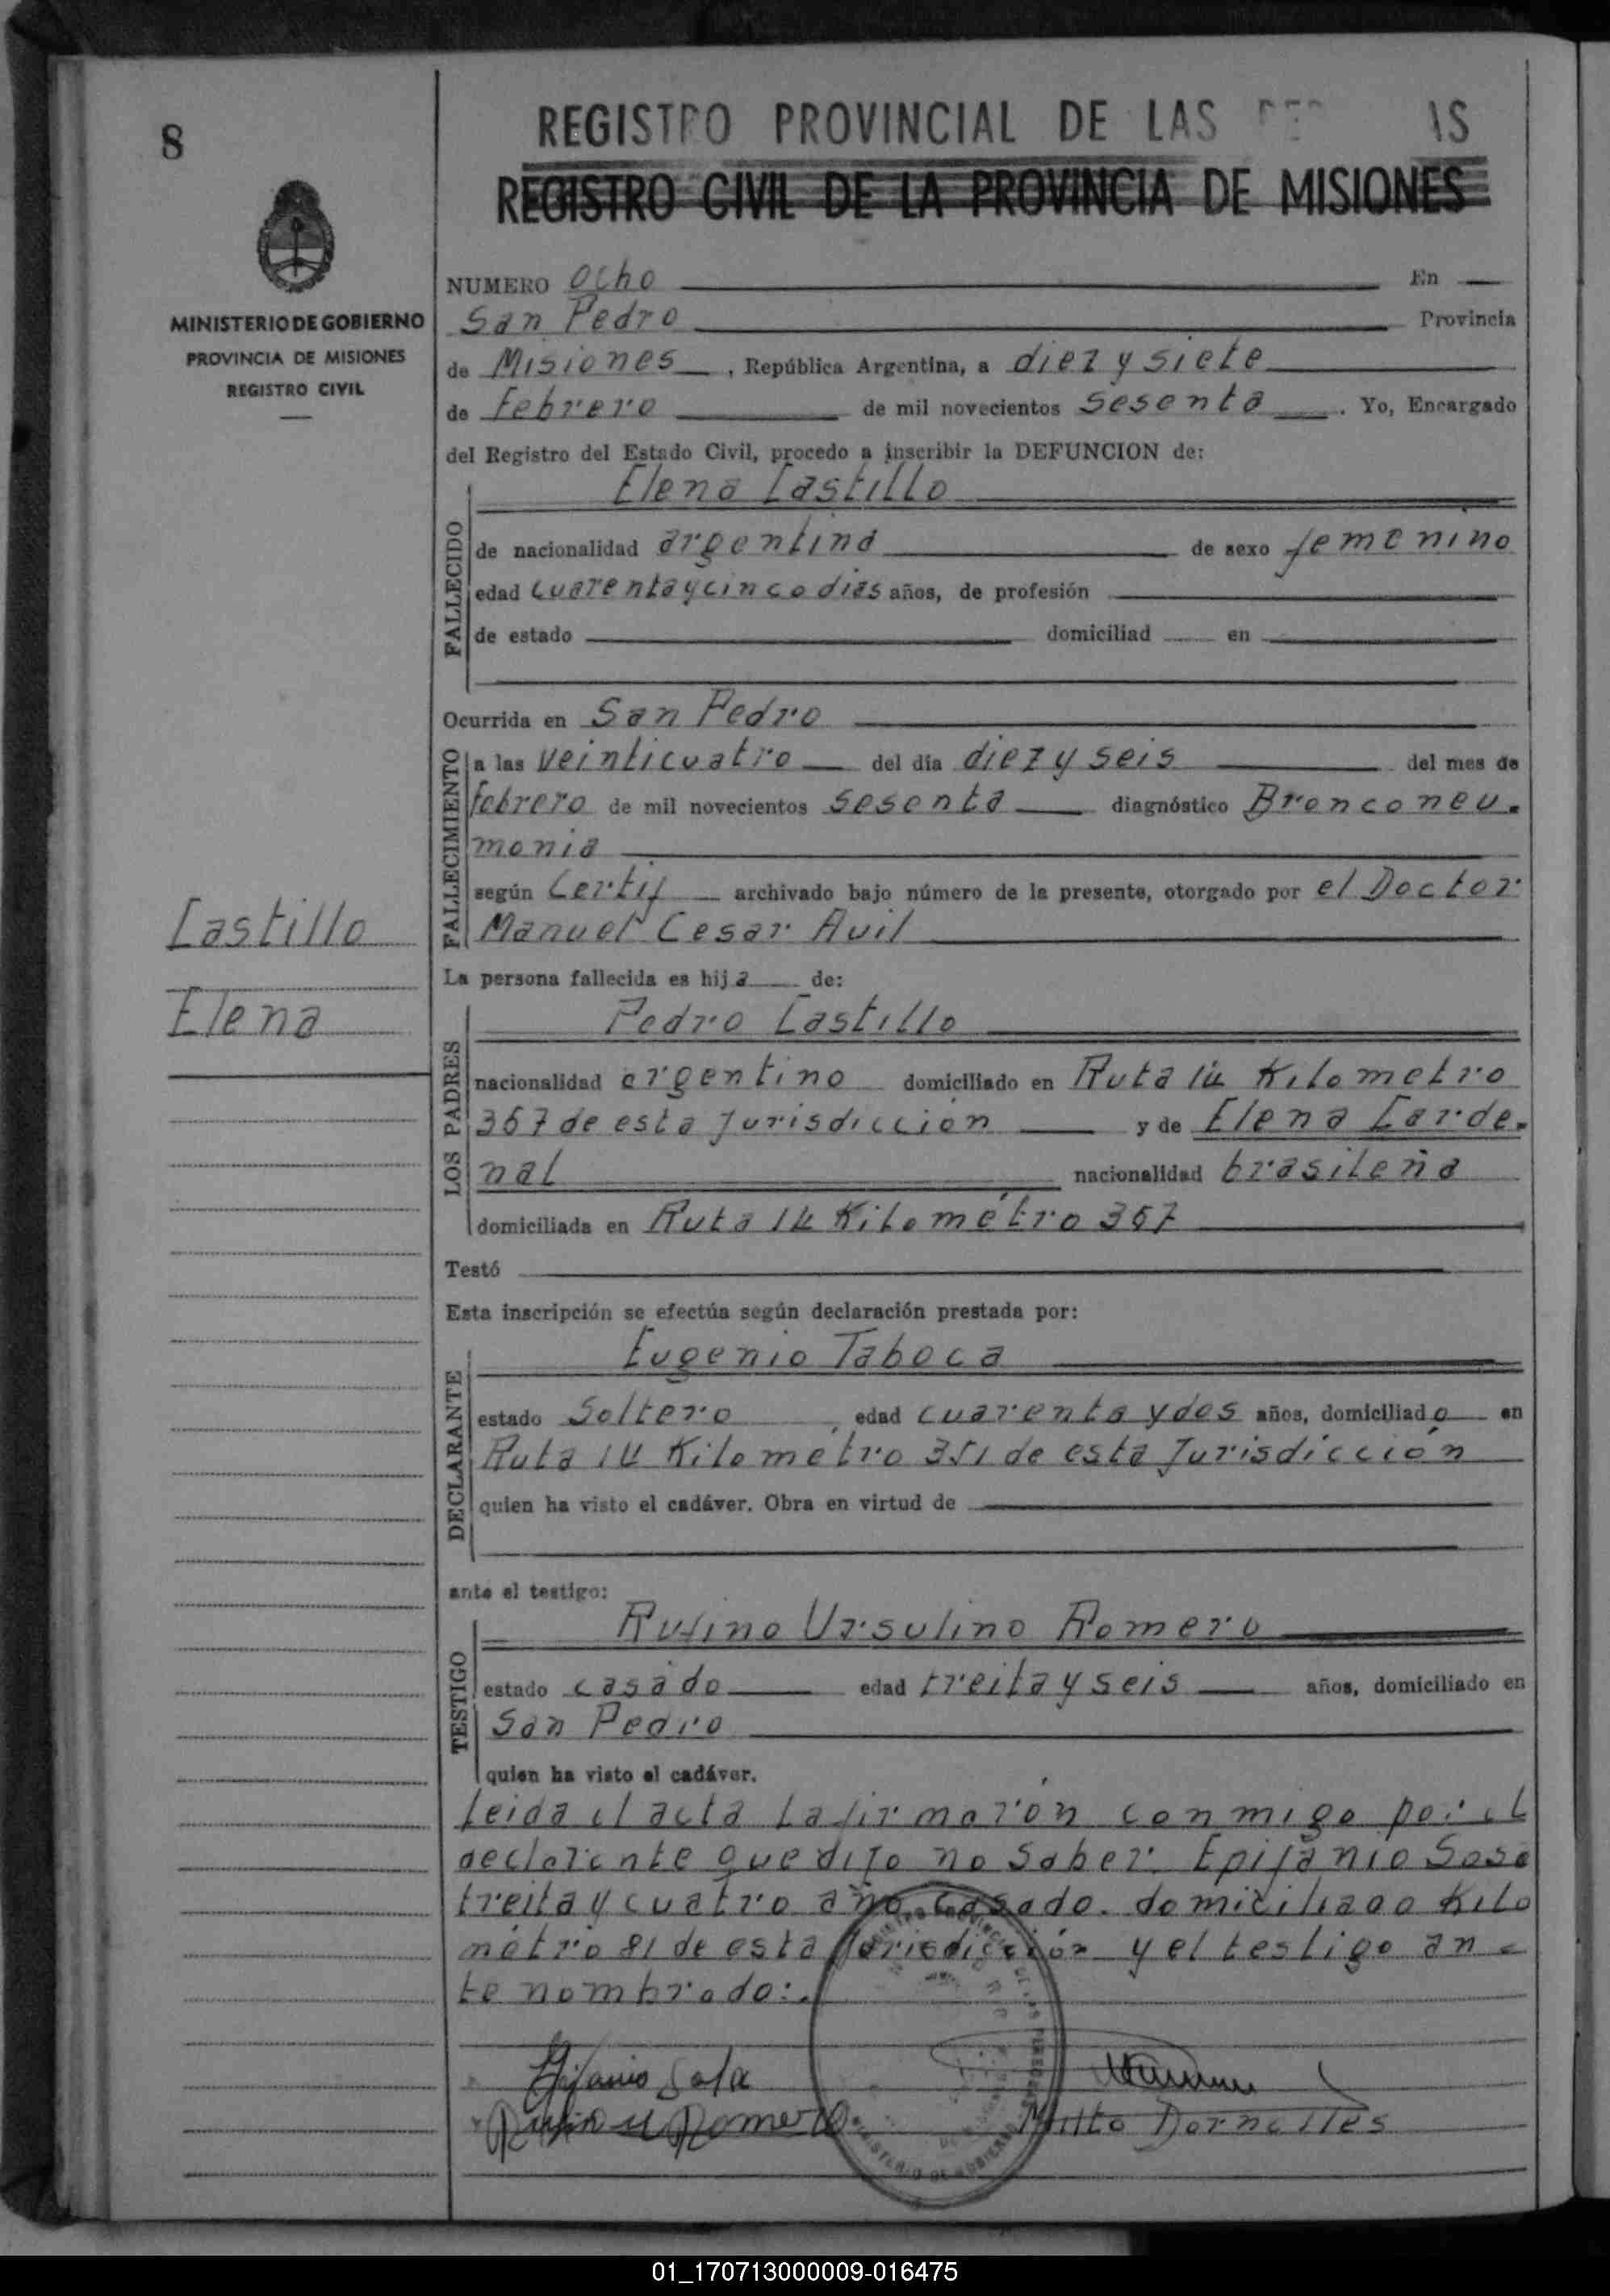 8
REGISTRO PROVINCIAL DE LAS
REGISTRO CIVIL DE LA PROVINCIA DE MISIONES
MINISTERIO DE GOBIERNO
PROVINCIA DE MISIONES
REGISTRO CIVIL
NUMERO Ocho En
San Pedro Provincia
de Misiones, República Argentina, a diez y siete
de Febrero de mil novecientos sesenta. Yo, Encargado
del Registro del Estado Civil, procedo a inscribir la DEFUNCION de:
Elena Castillo
FALLECIDO
de nacionalidad argentina de sexo femenino
edad cuarenta y cinco dias años, de profesión
de estado domiciliad en
Ocurrida en San Pedro
FALLECIMIENTO
a las veinticuatro del día diez y seis del mes de
febrero de mil novecientos sesenta diagnóstico Bronconeu-
monia
según Certif archivado bajo número de la presente, otorgado por el Doctor
Manuel Cesar Avil
Castillo
Elena
La persona fallecida es hija de:
Pedro Castillo
LOS PADRES
nacionalidad argentino domiciliado en Ruta 14 Kilometro
367 de esta Jurisdicción y de Elena Carde-
nal nacionalidad brasileña
domiciliada en Ruta 14 Kilométro 367
Testó
Esta inscripción se efectúa según declaración prestada por:
Eugenio Taboca
DECLARANTE
estado Soltero, edad cuarenta y dos años, domiciliado en
Ruta 14 Kilométro 351 de esta Jurisdicción
quien ha visto el cadáver. Obra en virtud de
ante el testigo:
Rufino Ursulino Romero
TESTIGO
estado casado edad treita y seis años, domiciliado en
San Pedro
quien ha visto el cadáver.
Leida el acta la firmarón conmigo por el
declarente que dijo no saber. Epifanio Sosa
treita y cuatro año casado. domiciliado Kilo
métro 81 de esta Jurisdicción y el testigo an-
te nombrado:.
Epifanio Sosa
Rufino U Romero Milto Dornelles
01_170713000009-016475